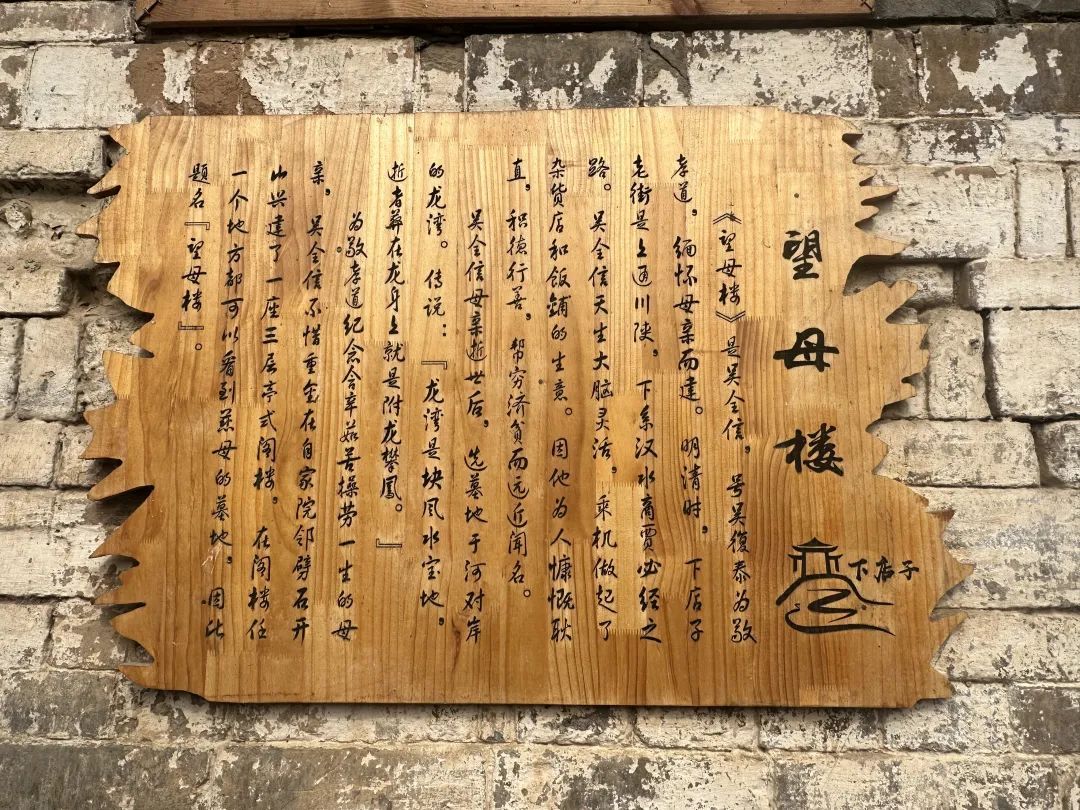 望母楼
下店子
《望母楼》是吴全信，号吴復泰为敬
孝道，缅怀母亲而建。明清时，下店子
老街是上通川陕，下系汉水商贾必经之
路。吴全信天生大脑灵活，乘机做起了
杂货店和饭铺的生意。因他为人慷慨耿
直，积德行善，帮穷济贫而远近闻名。
吴全信母亲逝世后，选墓地于河对岸
的龙湾。传说：『龙湾是块风水宝地，
逝者葬在龙身上就是附龙攀凤。』
为敬孝道纪念含辛茹苦操劳一生的母
亲，吴全信不惜重金在自家院邻劈石开
山兴建了一座三层亭式阁楼。在阁楼任
一个地方都可以看到慈母的墓地，因此
题名『望母楼』。